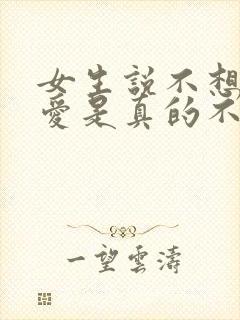 女生説不想
愛是真的不
一望雲濤